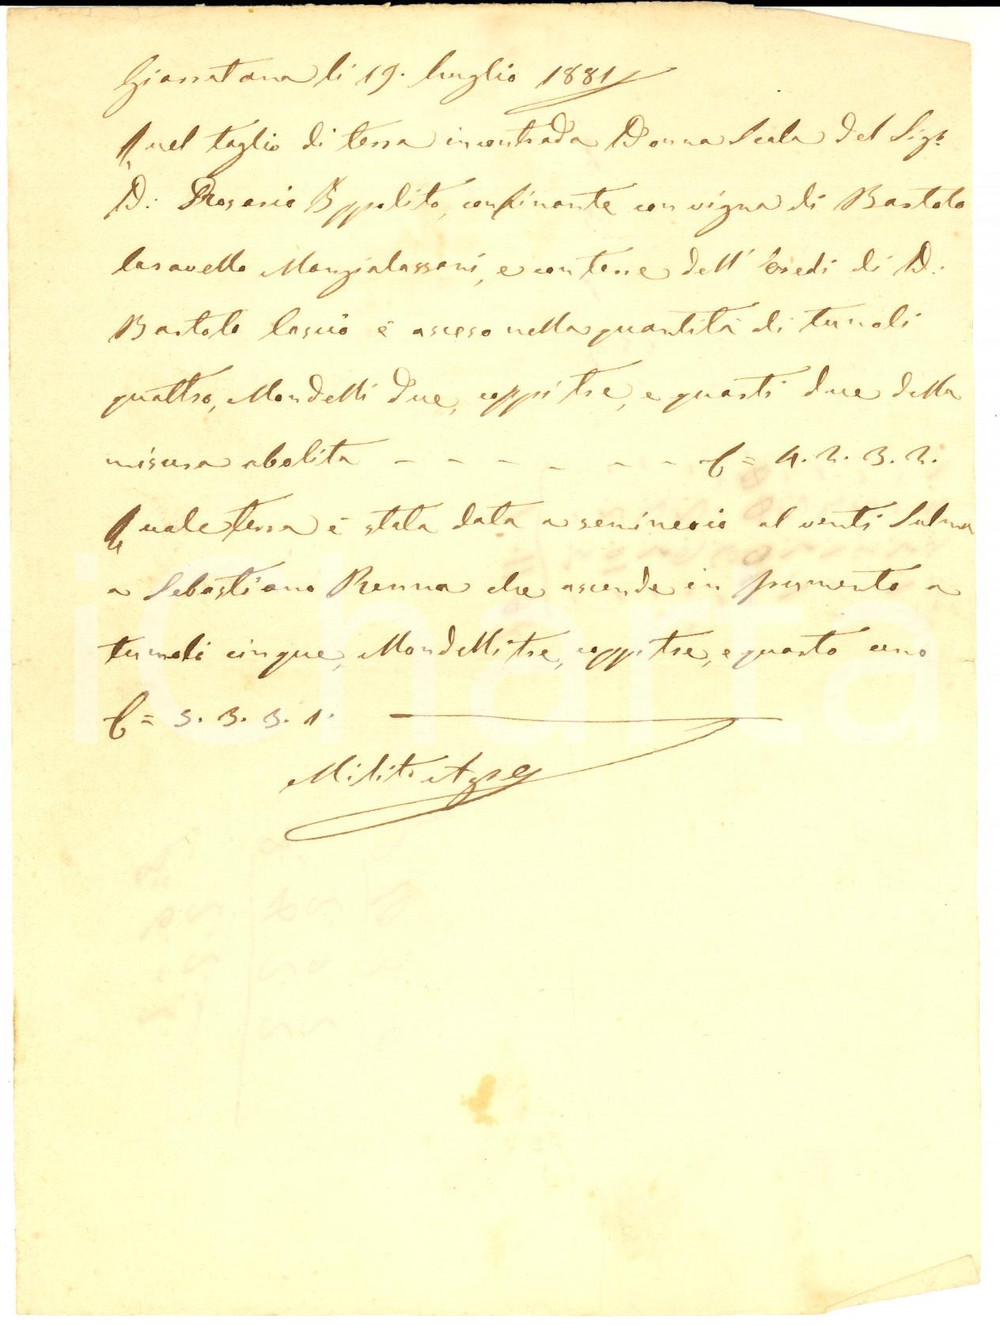 Giarratana li 19. luglio 1881
Quel taglio di terra in contrada Donna Scala del Sigr.
D: Rosario Ippolito, confinante con vigna di Bartolo
Caravello Mangialassani, e con terre dell' Eredi di D:
Bartolo Cascio è asceso nella quantità di tumoli
quattro, Mondelli due, coppi tre, e quarti due della
misura abolita - - - - - - - T = 4. 2. 3. 2.
Quale terra è stata data a seminerio al venti Salma
a Sebastiano Renna che ascende in frumento a
tumoli cinque, Mondelli tre, coppi tre, e quarto uno
T = 5. 3. 3. 1.
Militi Agre
iCharta